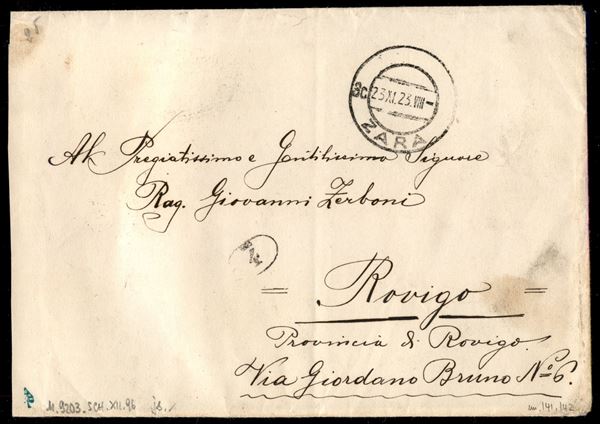 25
3c 23.XI.23.VIII
ZARA
Al Pregiatissimo e Gentilissimo Signore
Rag. Giovanni Zerboni
= Rovigo =
Provincia di Rovigo.
Via Giordano Bruno No 6.
11.9203.SCH.XII.96
m. 141, 142